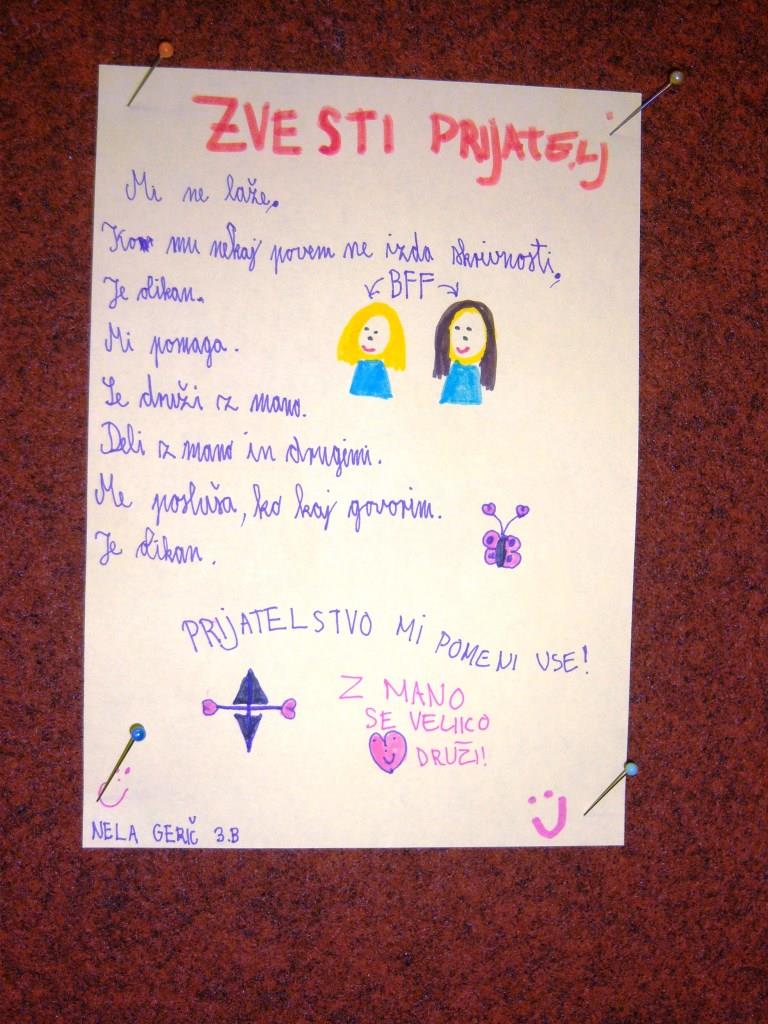 ZVESTI PRIJATELJ
Mi ne laže.
Ko mu nekaj povem ne izda skrivnosti.
Je olikan.
BFF
Mi pomaga.
Se druži z mano.
Deli z mano in drugimi.
Me posluša, ko kaj govorim.
Je olikan.
PRIJATELSTVO MI POMENI VSE!
Z MANO
SE VELIKO
DRUŽI!
NELA GERIČ 3.B